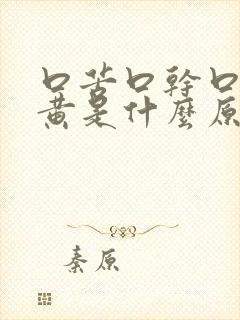 口苦口幹口
黄是什麼原
秦原